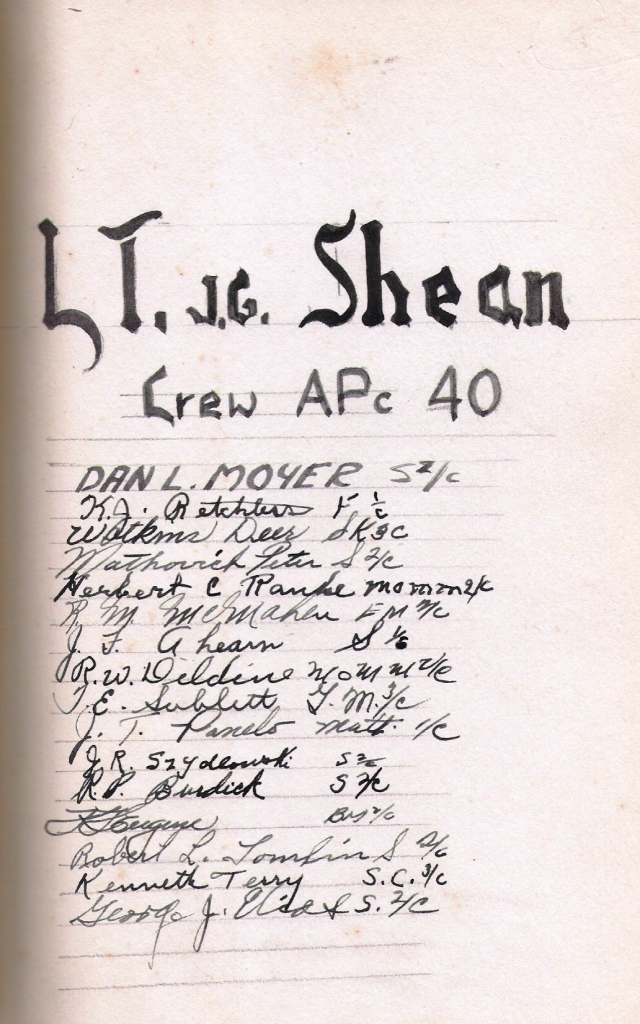 LT. J.G. Shean
Crew APc 40
DAN L. MOYER S 2/c
K.J. Retchless F 1/c
Watkins Deer SK3C
Mathovich Peter S 2/c
Herbert C Ranke momm2/c
R. M. McMahen EM 2/c
J. F. Ahearn S 1/c
R.W. Deldine MoMM2/c
T.E. Sublett G.M. 3/c
J. T. Panelo Matt. 1/c
J.R. Szydlowski S2c
R.P. Burdick S 2/c
BM 2/c
Robert L. Tomlin S 2/c
Kenneth Terry S.C. 3/c
George J. S. 2/c